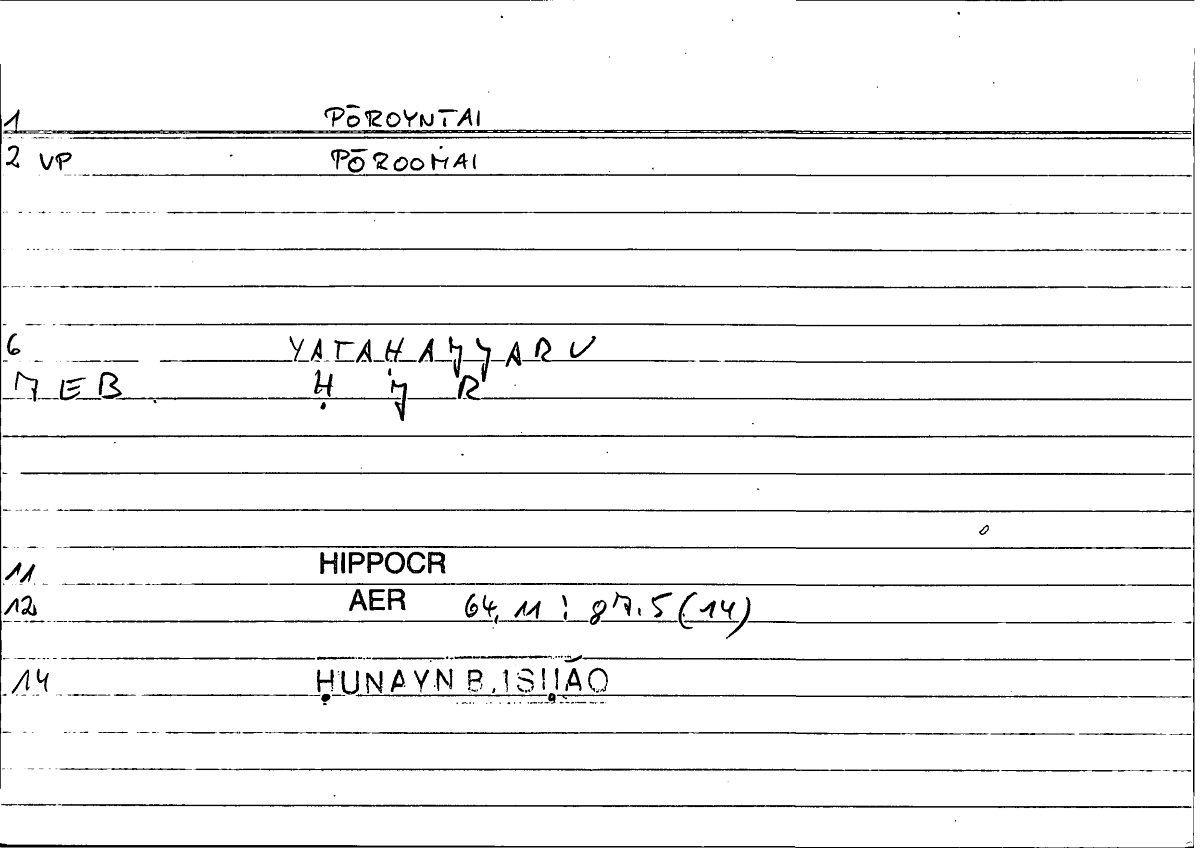 1 PŌROYNTAI
2 VP PŌROOMAI
6 YATAḤAJJARU
7 EB Ḥ J R
11 HIPPOCR
12 AER 64,11 : 87.5 (14)
14 ḤUNAYN B. ISḤĀQ